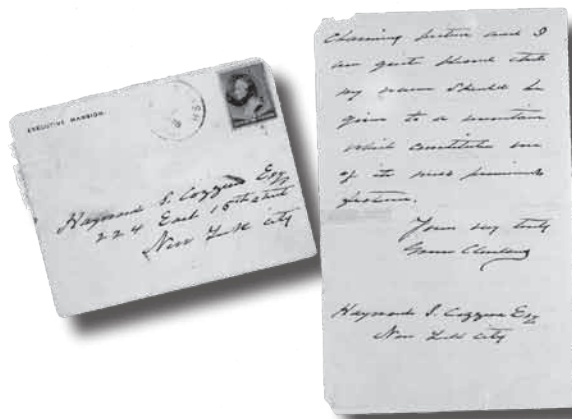 EXECUTIVE MANSION.
Haymond S.
224 East 15th Street
New York City
Charming picture and I
am quite that
my name should be
given to a mountain
which constitutes one
of its most
features.
Yours very truly
Grover Cleveland
Haymond S. Esq
New York City